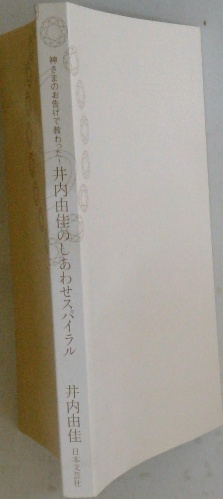 神さまのお告げで教わった!
井内由佳のしあわせスパイラル
井内由佳
日本文芸社